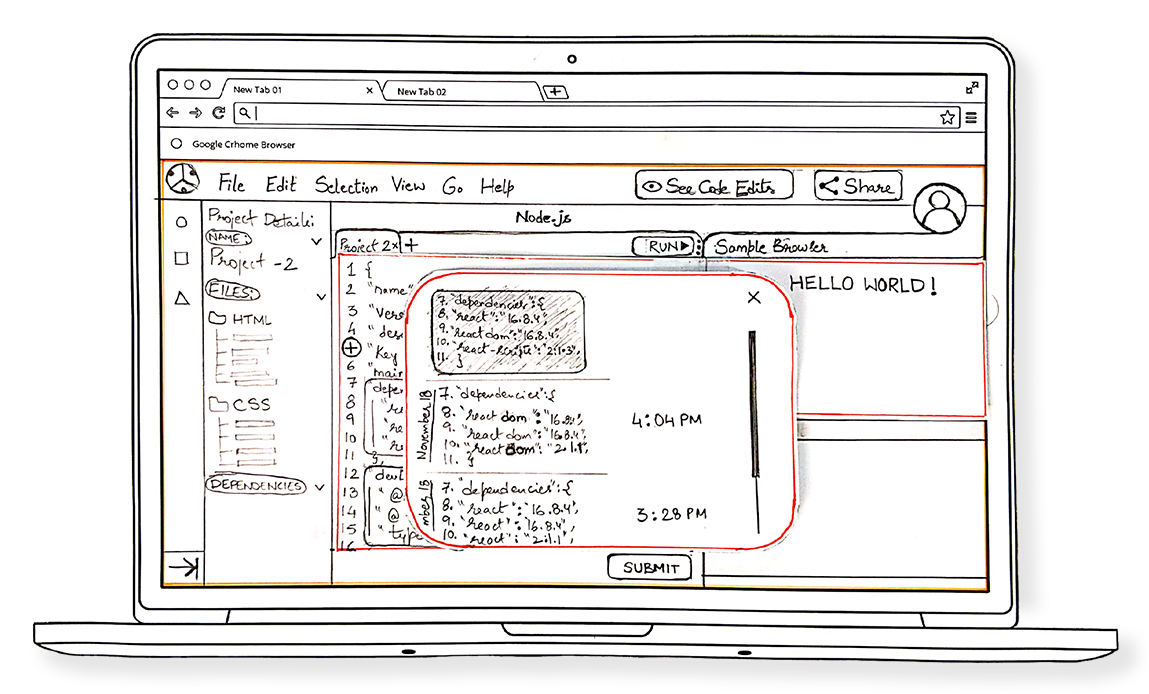 New Tab 01 ×
New Tab 02
+
Google Crhome Browser
File Edit Selection View Go Help
See Code Edits
Share
Project Detaili:
NAME:
Project -2
FILES:
HTML
CSS
DEPENDENCIES
Node.js
Project 2 × +
RUN
Sample Browser
1 {
2 "name"
3 "Vers
4 "des
"Key
6 "main
7 depen
8 "re
9 "re
10 "re
11 },
12 "devD
13 "@
14 "@
15 "type
16
×
7. "dependencies":{
8. "react":"16.8.4",
9. "react dom":"16.8.4",
10. "react-scripts":"2.1.3",
11. }
November 18
7. "dependencies":{
8. "react dom":"16.8.4",
9. "react dom":"16.8.4",
10. "react dom":"2.1.1",
11. }
4:04 PM
mber 18
7. "dependencies":{
8. "react":"16.8.4",
9. "react":"16.8.4",
10. "react":"2.1.1",
3:28 PM
HELLO WORLD!
SUBMIT